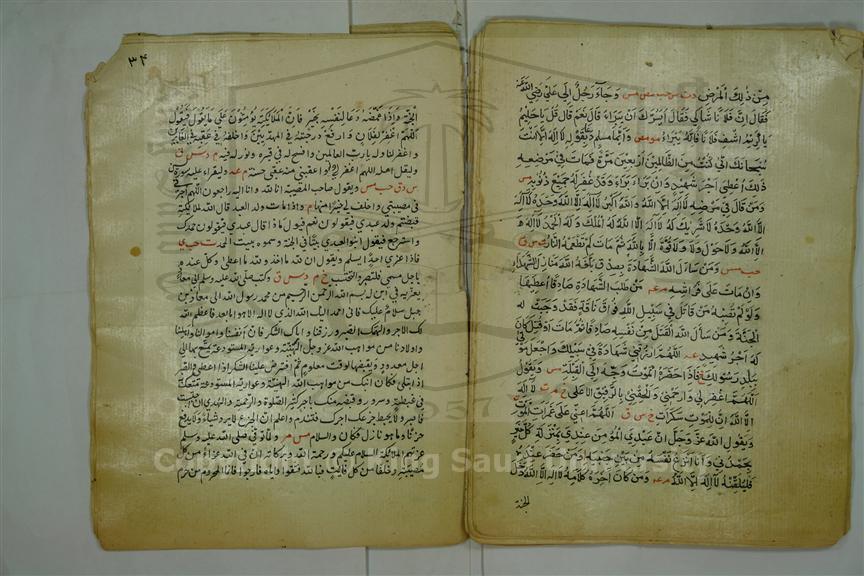 مِنْ ذٰلِكَ الْمَرَضِ دت س حب مص مس وَجَاءَ رَجُلٌ اِلٰى عَلِيٍّ رَضِيَ اللهُ عَنْهُ
فَقَالَ اِنَّ فُلَانًا شَاكٍ فَقَالَ اَيَسُرُّكَ اَنْ يَبْرَاَ قَالَ نَعَمْ قَالَ قُلْ يَا حَلِيْمُ
يَا كَرِيْمُ اشْفِ فُلَانًا فَاِنَّهُ يَبْرَأُ مومص وَاَيُّمَا مُسْلِمٍ دَعَا بِقَوْلِهِ لَا اِلٰهَ اِلَّا اَنْتَ
سُبْحَانَكَ اِنِّي كُنْتُ مِنَ الظَّالِمِيْنَ اَرْبَعِيْنَ مَرَّةً فَمَاتَ فِي مَرَضِهِ
ذٰلِكَ اُعْطِيَ اَجْرَ شَهِيْدٍ وَاِنْ بَرَأَ بَرَأَ وَقَدْ غُفِرَ لَهُ جَمِيْعُ ذُنُوْبِهِ مس
وَمَنْ قَالَ فِي مَرَضِهِ لَا اِلٰهَ اِلَّا اللهُ وَاللهُ اَكْبَرُ لَا اِلٰهَ اِلَّا اللهُ وَحْدَهُ لَا اِلٰهَ
اِلَّا اللهُ وَحْدَهُ لَا شَرِيْكَ لَهُ لَا اِلٰهَ اِلَّا اللهُ لَهُ الْمُلْكُ وَلَهُ الْحَمْدُ لَا اِلٰهَ
اِلَّا اللهُ وَلَا حَوْلَ وَلَا قُوَّةَ اِلَّا بِاللهِ ثُمَّ مَاتَ لَمْ تَطْعَمْهُ النَّارُ ت س ق
حب مس وَمَنْ سَاَلَ اللهَ الشَّهَادَةَ بِصِدْقٍ بَلَّغَهُ اللهُ مَنَازِلَ الشُّهَدَاءِ
وَاِنْ مَاتَ عَلٰى فِرَاشِهِ م عه مَنْ طَلَبَ الشَّهَادَةَ صَادِقًا اُعْطِيَهَا
وَلَوْ لَمْ تُصِبْهُ م مَنْ قَاتَلَ فِي سَبِيْلِ اللهِ فُوَاقَ نَاقَةٍ فَقَدْ وَجَبَتْ لَهُ
الْجَنَّةُ وَمَنْ سَاَلَ اللهَ الْقَتْلَ مِنْ نَفْسِهِ صَادِقًا ثُمَّ مَاتَ اَوْ قُتِلَ كَانَ
لَهُ اَجْرُ شَهِيْدٍ عه اَللّٰهُمَّ ارْزُقْنِي شَهَادَةً فِي سَبِيْلِكَ وَاجْعَلْ مَوْتِي
بِبَلَدِ رَسُوْلِكَ خ فَاِذَا حَضَرَهُ الْمَوْتُ وُجِّهَ اِلَى الْقِبْلَةِ مس وَيَقُوْلُ
اَللّٰهُمَّ اغْفِرْ لِي وَارْحَمْنِي وَاَلْحِقْنِي بِالرَّفِيْقِ الْاَعْلٰى خ م ت لَا اِلٰهَ
اِلَّا اللهُ اِنَّ لِلْمَوْتِ سَكَرَاتٍ خ س ق اَللّٰهُمَّ اَعِنِّي عَلٰى غَمَرَاتِ الْمَوْتِ
وَيَقُوْلُ اللهُ عَزَّ وَجَلَّ اِنَّ عَبْدِيَ الْمُؤْمِنَ عِنْدِي بِمَنْزِلَةِ كُلِّ خَيْرٍ
يَحْمَدُنِي وَاَنَا اَنْزِعُ نَفْسَهُ مِنْ بَيْنِ جَنْبَيْهِ ا وَمَنْ حَضَرَ عِنْدَهُ
فَلْيُلَقِّنْهُ لَا اِلٰهَ اِلَّا اللهُ م عه وَمَنْ كَانَ اٰخِرُ كَلَامِهِ لَا اِلٰهَ اِلَّا اللهُ دَخَلَ
الجنة
٣٤
الْجَنَّةَ وَاِذَا غَمَّضَهُ دَعَا لِنَفْسِهِ بِخَيْرٍ فَاِنَّ الْمَلَائِكَةَ يُؤَمِّنُوْنَ عَلٰى مَا يَقُوْلُ فَيَقُوْلُ
اَللّٰهُمَّ اغْفِرْ لِفُلَانٍ وَارْفَعْ دَرَجَتَهُ فِي الْمَهْدِيِّيْنَ وَاخْلُفْهُ فِي عَقِبِهِ فِي الْغَابِرِيْنَ
واغفر لنا وله يا رب العالمين وافسح له في قبره ونور له فيه م د س ق
وليقل اهله اللهم اغفر لي وله واعقبني منه عقبى حسنة م عه وليقرأ عليه سورة يس
س د ق حب مس ويقول صاحب المصيبة انا لله وانا اليه راجعون اللهم اجرني
في مصيبتي واخلف لي خيرا منها م واذا مات ولد العبد قال الله لملائكته
قبضتم ولد عبدي فيقولون نعم فيقول ماذا قال عبدي فيقولون حمدك
واسترجع فيقول ابنوا لعبدي بيتا في الجنة وسموه بيت الحمد ت حب ى
فاذا عزى احدا يسلم ويقول ان لله ما اخذ ولله ما اعطى وكل عنده
باجل مسمى فلتصبر ولتحتسب خ م د س ق وكتب صلى الله عليه وسلم الى معاذ
يعزيه في ابن له بسم الله الرحمن الرحيم من محمد رسول الله الى معاذ بن
جبل سلام عليك فاني احمد اليك الله الذي لا اله الا هو اما بعد فاعظم الله
لك الاجر والهمك الصبر ورزقنا واياك الشكر فان انفسنا واموالنا واهلينا
واولادنا من مواهب الله عز وجل الهنيئة وعواريه المستودعة يمتع بها الى
اجل معدود ويقبضها لوقت معلوم ثم افترض علينا الشكر اذا اعطى والصبر
اذا ابتلى فكان ابنك من مواهب الله الهنيئة وعواريه المستودعة متعك به
في غبطة وسرور وقبضه منك باجر كثير الصلوة والرحمة والهدى ان احتسبت
فاصبر ولا يحبط جزعك اجرك فتندم واعلم ان الجزع لا يرد شيئا ولا يدفع
حزنا وما هو نازل فكان والسلام مس مر ولما توفي صلى الله عليه وسلم
عزتهم الملائكة السلام عليكم ورحمة الله وبركاته ان في الله عزاء من كل
مصيبة وخلفا من كل فائت فبالله فثقوا واياه فارجوا فانما المحروم من حرم